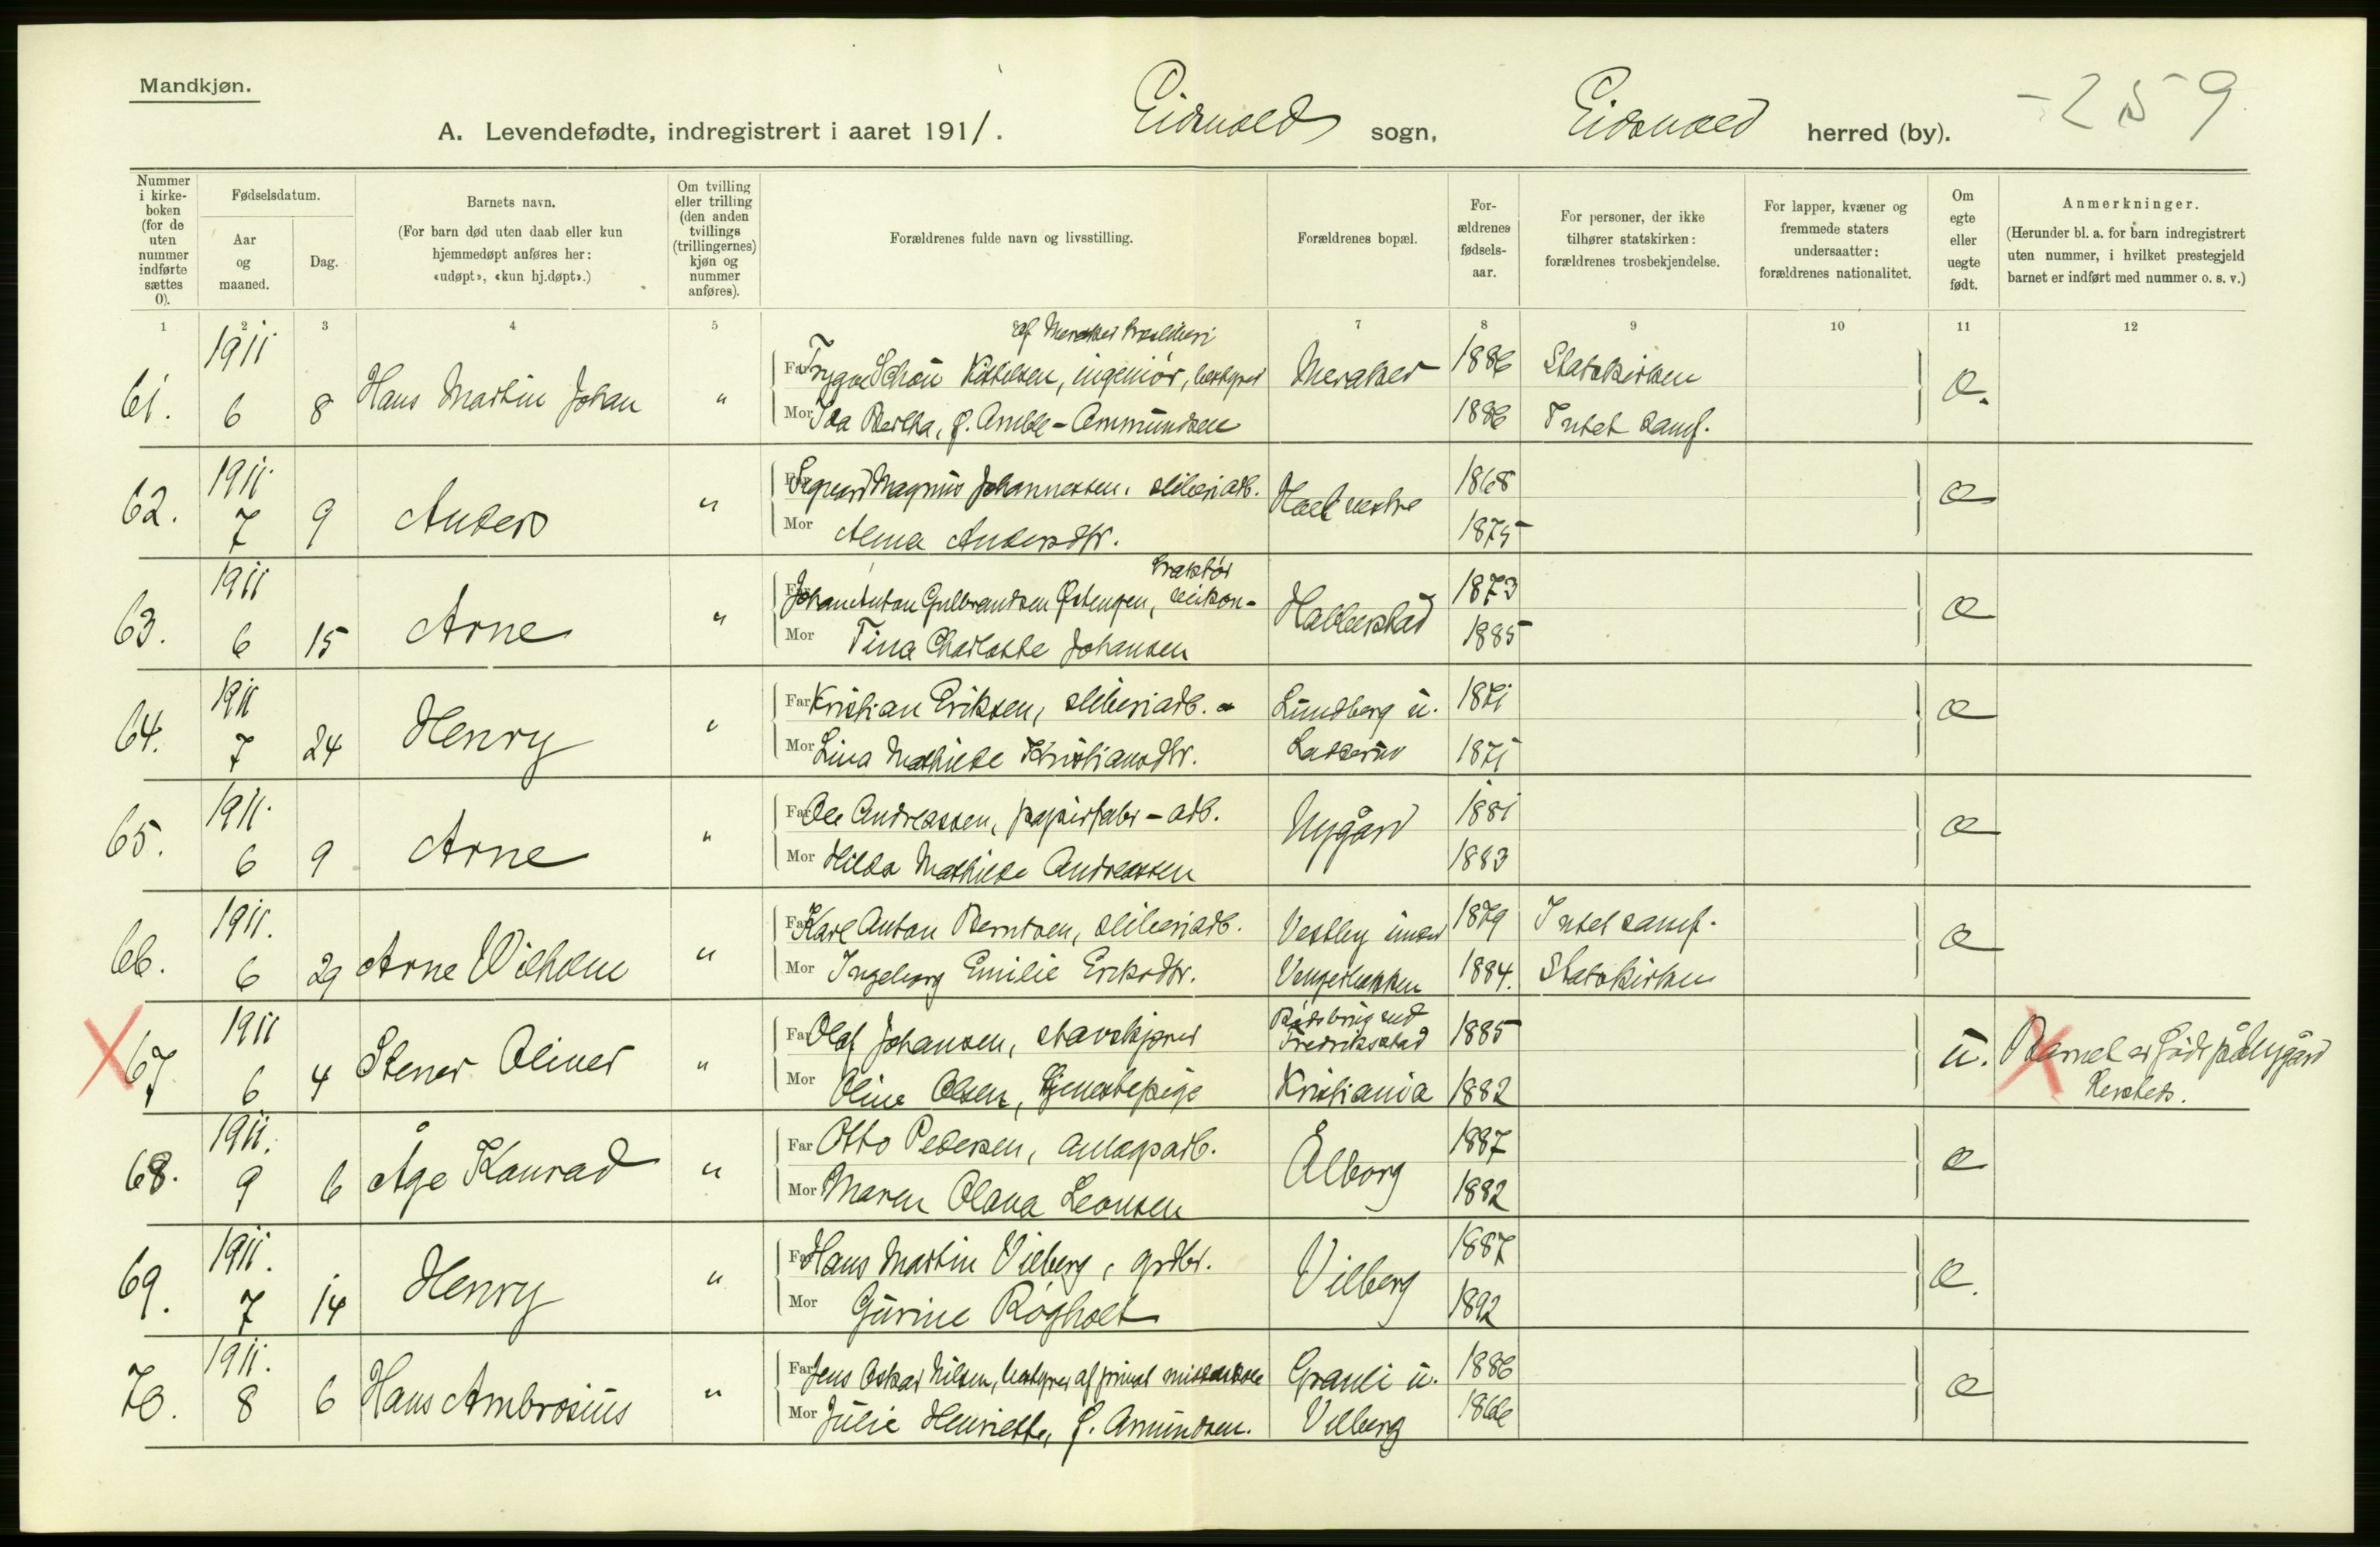 Mandkjøn.
A. Levendefødte, indregistrert i aaret 1911. Eidsvold sogn, Eidsvold herred (by). 259
Nummer i kirke-boken (for de uten nummer indførte sættes 0).
Fødselsdatum.
Aar og maaned.
Dag.
Barnets navn.
(For barn død uten daab eller kun hjemmedøpt anføres her: «udøpt», «kun hj.døpt».)
Om tvilling eller trilling (den anden tvillings (trillingernes) kjøn og nummer anføres).
Forældrenes fulde navn og livsstilling.
Forældrenes bopæl.
For-ældrenes fødsels-aar.
For personer, der ikke tilhører statskirken: forældrenes trosbekjendelse.
For lapper, kvæner og fremmede staters undersaatter: forældrenes nationalitet.
Om egte eller uegte født.
Anmerkninger.
(Herunder bl. a. for barn indregistrert uten nummer, i hvilket prestegjeld barnet er indført med nummer o. s. v.)
1 2 3 4 5 7 8 9 10 11 12
1911
af Meraker
61. 6 8 Hans Martin Johan " Far Trygve Schøn ingeniør, bestyrer Meraker 1886 Statskirken e.
Mor Ida Bertha, f. Amble-Ammundsen 1886 Intet samf.
1911.
62. 7 9 Anders " Far Sigvard Magnus Johannessen, sliberiarb. Hoel vestre 1868 e
Mor Alma Andersdtr. 1875
1911
traktør
63. 6 15 Arne " Far Johan Anton Gulbrandsen Østengen, veikon- Hallerstad 1873 e
Mor Tina Charlotte Johansen 1885
1911
64. 7 24 Henry " Far Kristian Eriksen, sliberiarb. Lundberg u. 1871 e
Mor Lina Mathilde Kristiansdtr. 1871
1911.
65. 6 9 Arne " Far Ole Andreassen, papirfabr-arb. Nygård 1881 e
Mor Hilda Mathilde Andreassen 1883
1911.
66. 6 29 Arne Vilhelm " Far Karl Anton Berntsen, sliberiarb. Vestby under 1879 Intet samf. e
Mor Ingeborg Emilie Eriksdtr. Vengerbakken 1884. Statskirken
1911
67 6 4 Stener Oliver " Far Olaf Johansen, stavskjærer ved Fredrikstad 1885 u. Barnet er født på Nygård
Mor Oline Olsen, tjenestepige Kristiania 1882
1911.
68. 9 6 Åge Konrad " Far Otto Pedersen, anlægsarb. Ålborg 1887 e
Mor Maren Olava Leonsen 1882
1911.
69. 7 14 Henry " Far Hans Martin Vilberg, grdbr. Vilberg 1887 e.
Mor Gurine Røgholt 1892
1911.
70. 8 6 Hans Ambrosius " Far Jens Oskar Nilsen, bestyrer af privat Granli u. 1886 e
Mor Julie Henriette, f. Amundsen. Vilberg